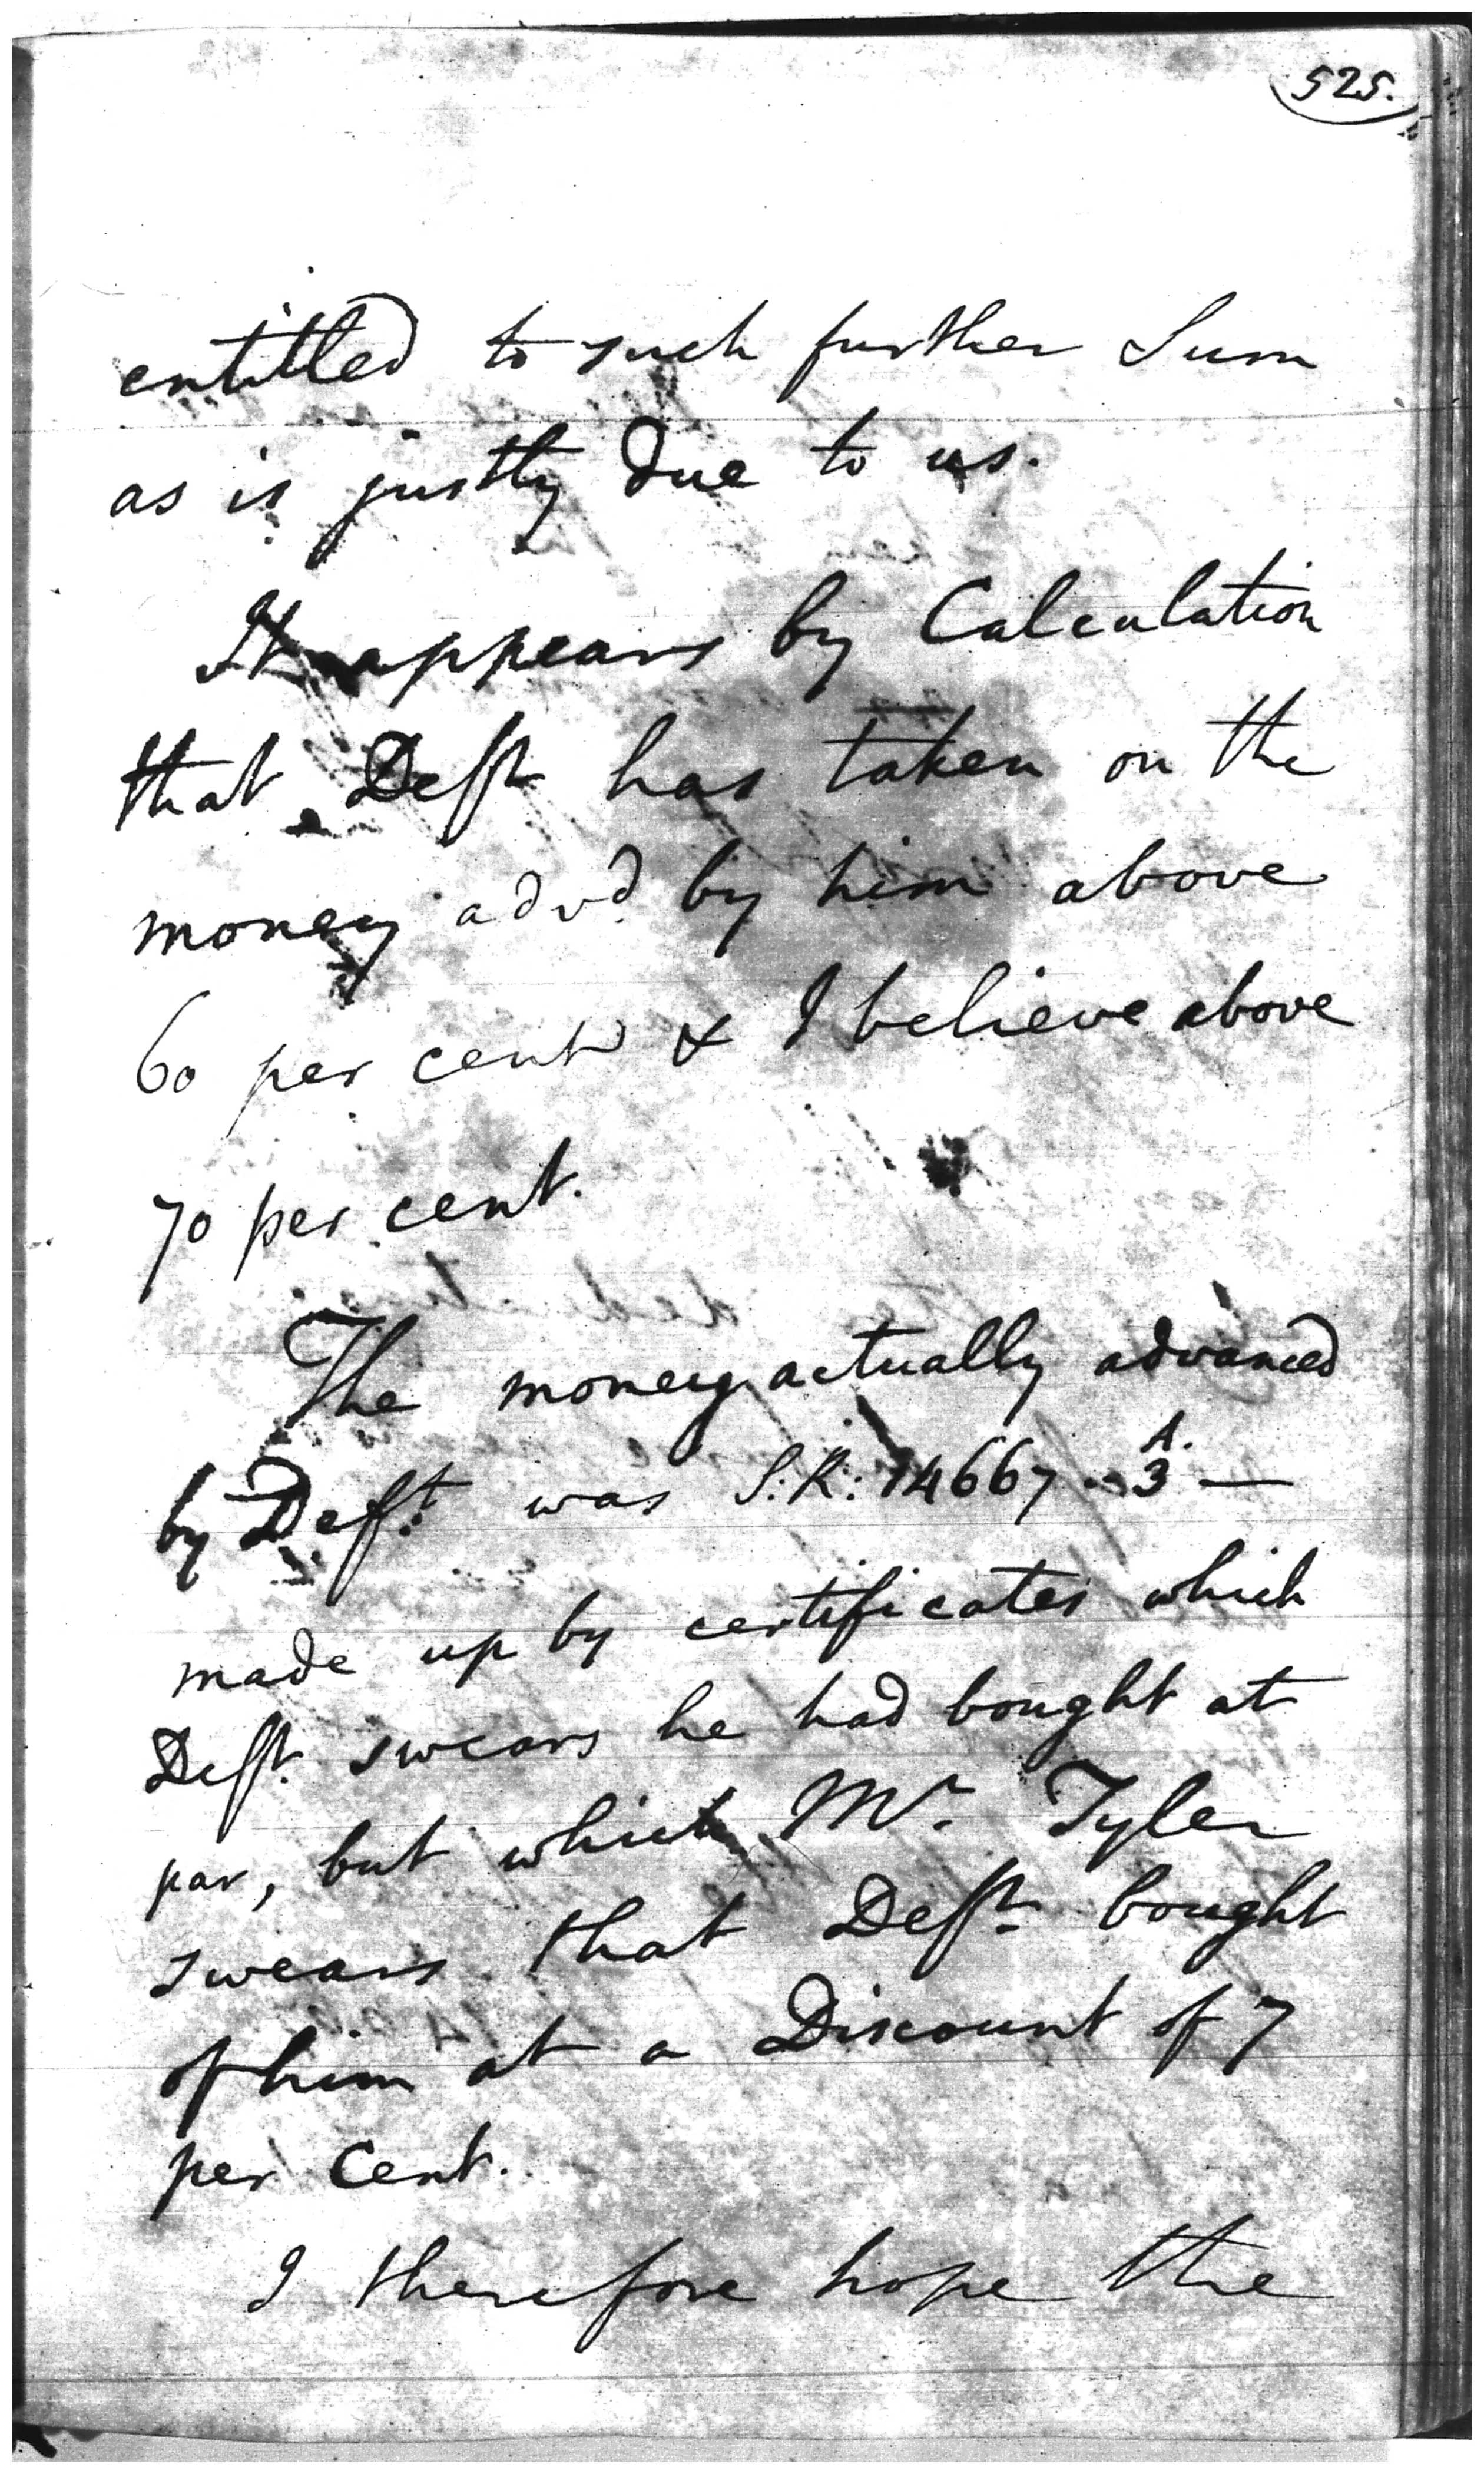 525.
entitled to such further Sum
as is justly due to us.
It appears by Calculation
that Deft has taken on the
money advd. by him above
60 per cent & I believe above
70 per cent.
The money actually advanced
A.
by Deft. was S:R: 14667 - 3 —
made up by certificates which
Deft. swears he had bought at
par, but which Mr. Tyler
swears that Deft. bought
of him at a Discount of 7
per Cent.
I therefore hope the